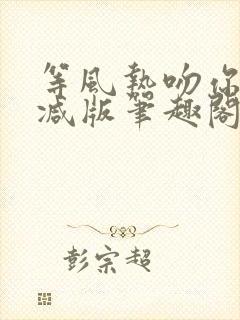 等风热吻你
减版笔趣阁
彭宗超